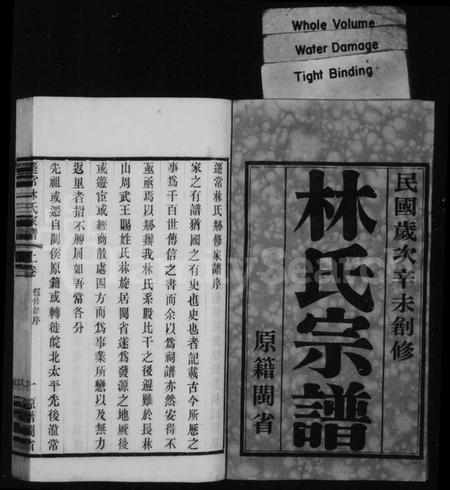 Whole Volume
Water Damage
Tight Binding
民國歲次辛未創修
林氏宗譜
原籍閩省
蓬常林氏㓝修家譜序
家之有譜猶國之有史也史也者記載古今所歷之
事爲千百世傳信之書而余以爲祠譜亦然安得不
亟亟焉以㓝辦我林氏系殷比干之後避難於長林
山周武王賜姓氏林旋居閩省遂爲發源之地厥後
或遊宦或經商散處四方而爲事業所戀以及無力
返里者指不勝屈如吾當各分
先祖或遷自閩侯原籍或轉徙皖北太平先後蓬常
林氏家譜
上卷